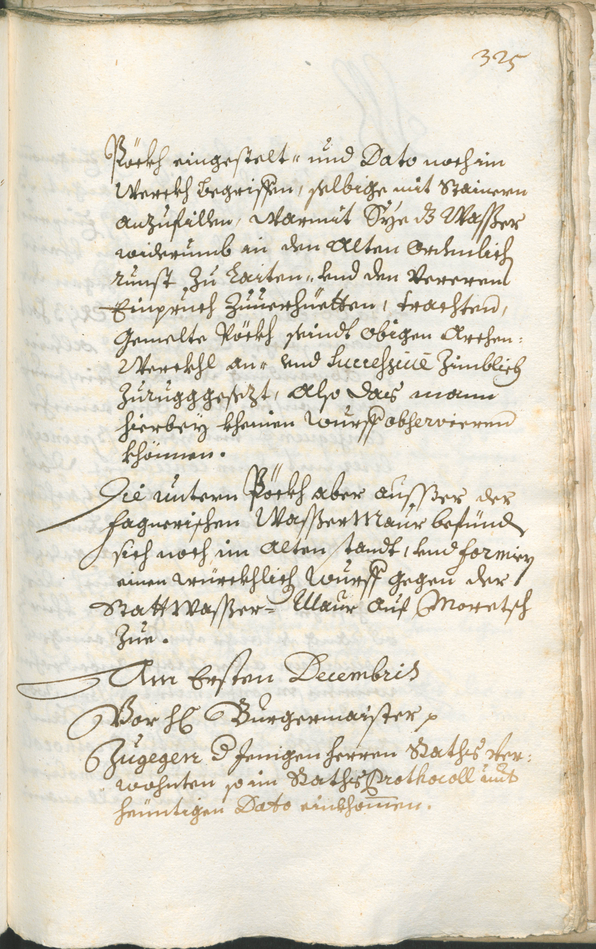 325
Pöckh eingestelt“ und Dato noch im
Werckh begriffen, selbige mit Stainern
anzufillen, Warmit Sÿe dz Wasser
widerumb in den Alten Ordenlich
runst zu Laiten“ und den Vereren
Einspruch zuuerhüetten, trachten,
Gemelte Pöckh seindt obigen Archen:
Werckhl an“ und zimblich
zurugggesezt, also das mann
hierbey kheinen Wurff obhervieren
khönnen.
Die untern Pöckh aber ausser der
Fagnerischen Wassermaur befünd
sich noch im alten standt, und formiern
einen würckhlich Wurff gegen der
Statt Wasser= Maur auf Moretsch
zue.
Am Ersten Decembris
Vor hl Burgermaister p
Zugegen d Jenigen herren Raths Ver:
wohnten so im Raths Prothocoll unts
heuntigen Dato einkhomen.